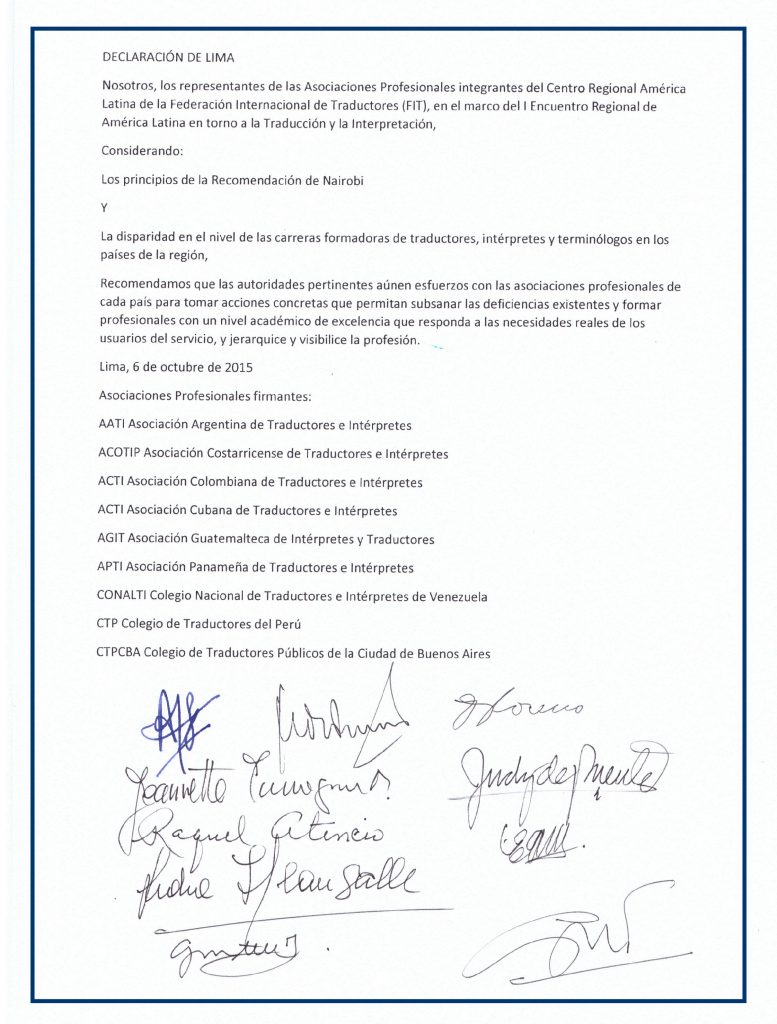 DECLARACIÓN DE LIMA
Nosotros, los representantes de las Asociaciones Profesionales integrantes del Centro Regional América
Latina de la Federación Internacional de Traductores (FIT), en el marco del I Encuentro Regional de
América Latina en torno a la Traducción y la Interpretación,
Considerando:
Los principios de la Recomendación de Nairobi
Y
La disparidad en el nivel de las carreras formadoras de traductores, intérpretes y terminólogos en los
países de la región,
Recomendamos que las autoridades pertinentes aúnen esfuerzos con las asociaciones profesionales de
cada país para tomar acciones concretas que permitan subsanar las deficiencias existentes y formar
profesionales con un nivel académico de excelencia que responda a las necesidades reales de los
usuarios del servicio, y jerarquice y visibilice la profesión.
Lima, 6 de octubre de 2015
Asociaciones Profesionales firmantes:
AATI Asociación Argentina de Traductores e Intérpretes
ACOTIP Asociación Costarricense de Traductores e Intérpretes
ACTI Asociación Colombiana de Traductores e Intérpretes
ACTI Asociación Cubana de Traductores e Intérpretes
AGIT Asociación Guatemalteca de Intérpretes y Traductores
APTI Asociación Panameña de Traductores e Intérpretes
CONALTI Colegio Nacional de Traductores e Intérpretes de Venezuela
CTP Colegio de Traductores del Perú
CTPCBA Colegio de Traductores Públicos de la Ciudad de Buenos Aires
Jeannette
Judy de
Raquel Atencio